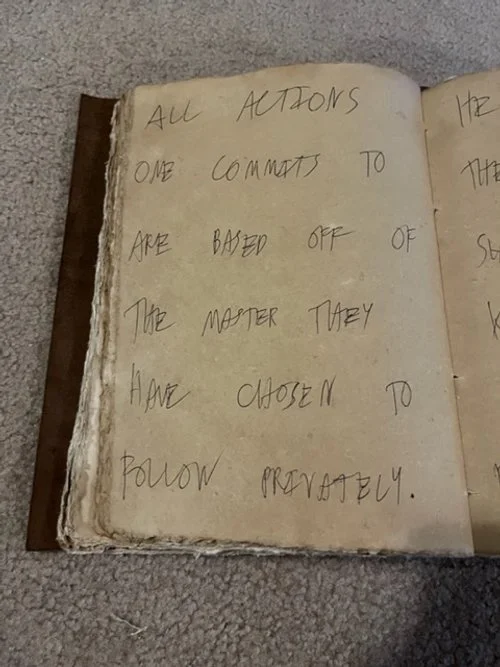 ALL ACTIONS
ONE COMMITS TO
ARE BASED OFF OF
THE MASTER THEY
HAVE CHOSEN TO
FOLLOW PRIVATELY.
HE
THE